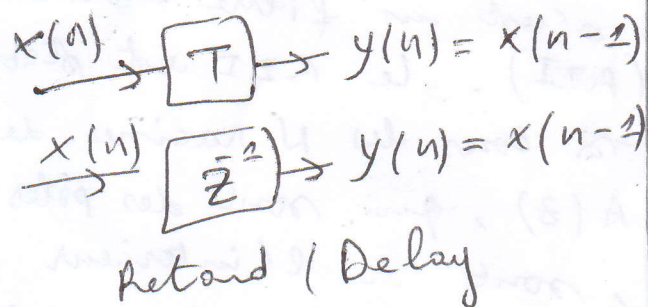 x(n) T y(n) = x(n-1)
x(n) z⁻¹ y(n) = x(n-1)
Retard / Delay